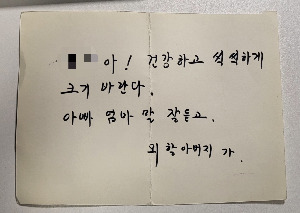 아! 건강하고 씩씩하게
크기 바란다.
아빠 엄마 말 잘듣고.
외할아버지 가.